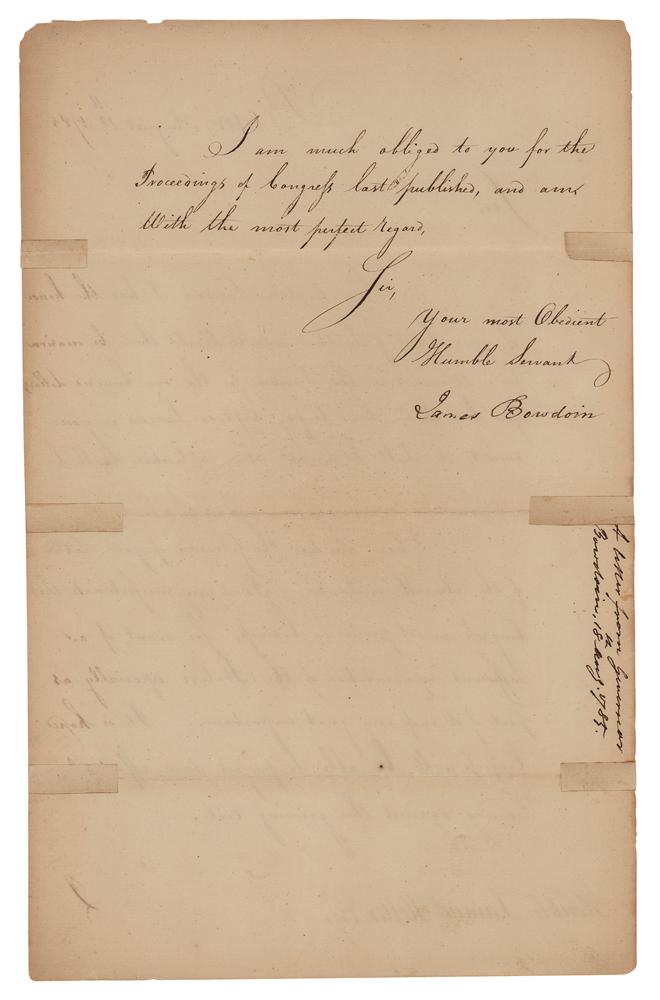 I am much obliged to you for the
Proceedings of Congress last published, and am
With the most perfect regard,
Sir,
Your most Obedient
Humble Servant
James Bowdoin
A letter from Governor
Bowdoin, 18 Aug. 1785.